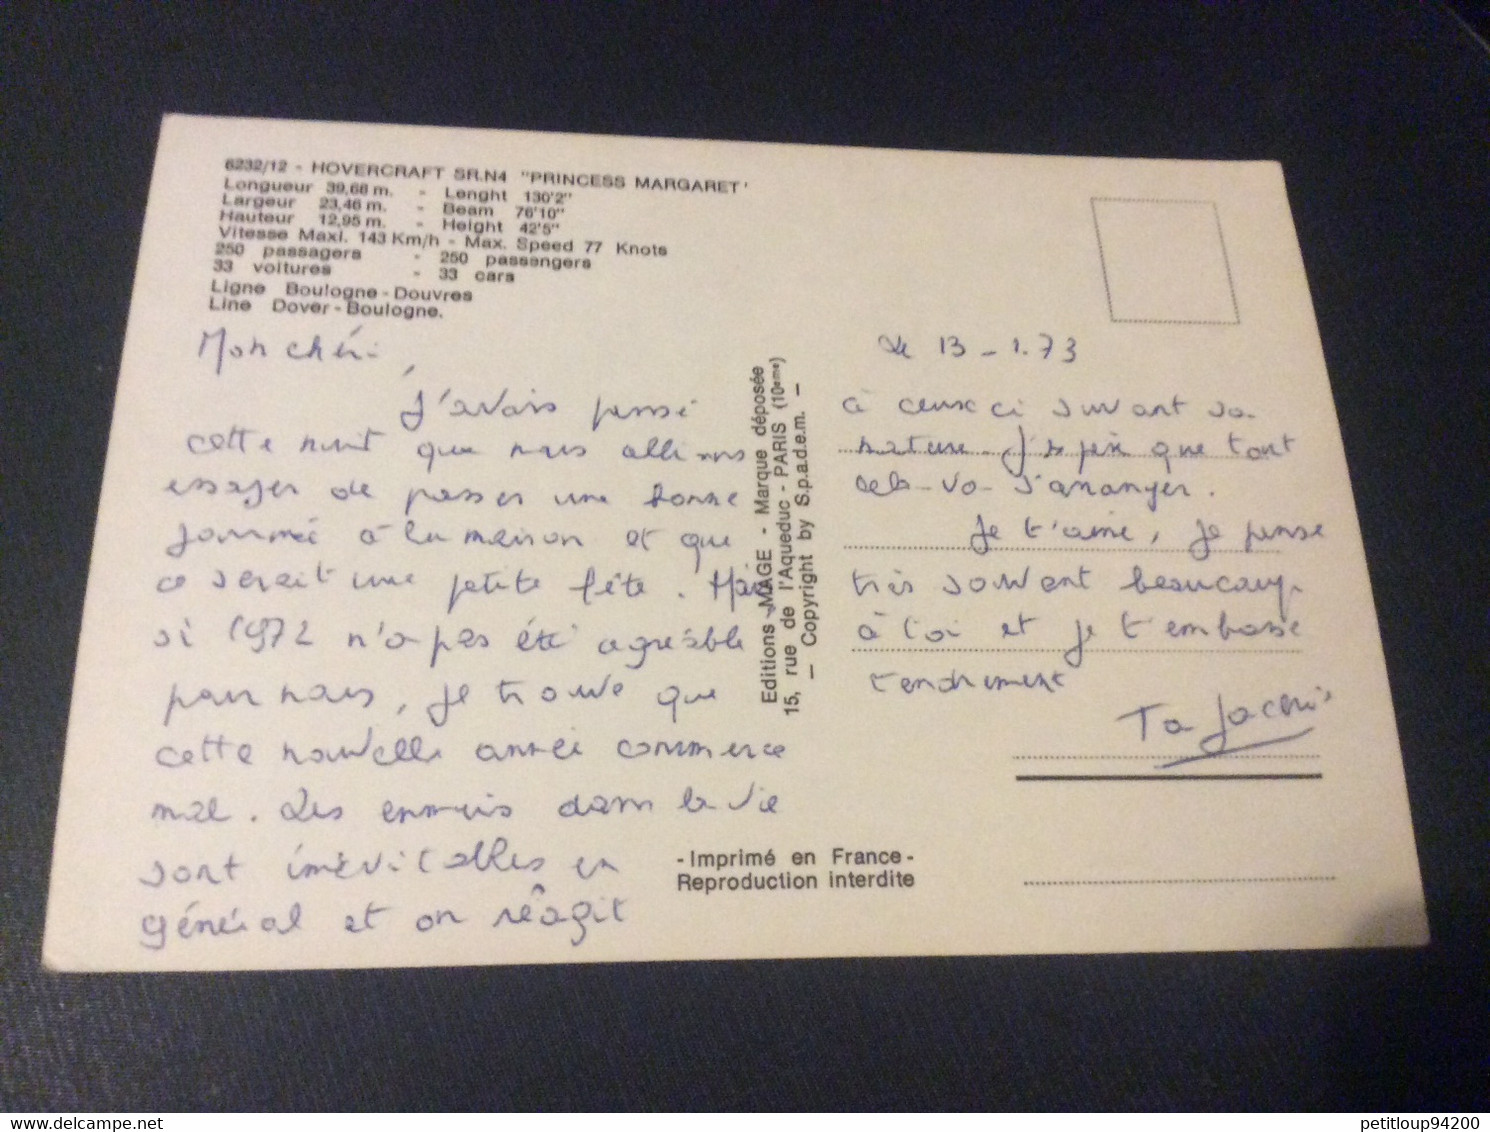 6232/12 - HOVERCRAFT SR.N4 "PRINCESS MARGARET'
Longueur 39,68 m. - Lenght 130'2"
Largeur 23,46 m. - Beam 76'10"
Hauteur 12,95 m. - Height 42'5"
Vitesse Maxi. 143 Km/h - Max. Speed 77 Knots
250 passagers - 250 passengers
33 voitures - 33 cars
Ligne Boulogne - Douvres
Line Dover - Boulogne.
Mon chéri,
J'avais pensé
cette nuit que nous allions
essayer de passer une bonne
journée à la maison et que
ce serait une petite fête. Mais
si 1972 n'a pas été agréable
pour nous, je trouve que
cette nouvelle année commence
mal. Les ennuis dans la vie
sont inévitables en
général et on réagit
Editions "MAGE - Marque déposée
15, rue de l'Aqueduc - PARIS (10eme)
— Copyright by S.p.a.d.e.m. —
Le 13 - 1.73
à ceux ci suivant sa
nature. que tout
cela va s'arranger.
Je t'aime, je pense
très souvent beaucoup
à toi et je t'embrasse
tendrement
Ta
- Imprimé en France -
Reproduction interdite
petitloup94200